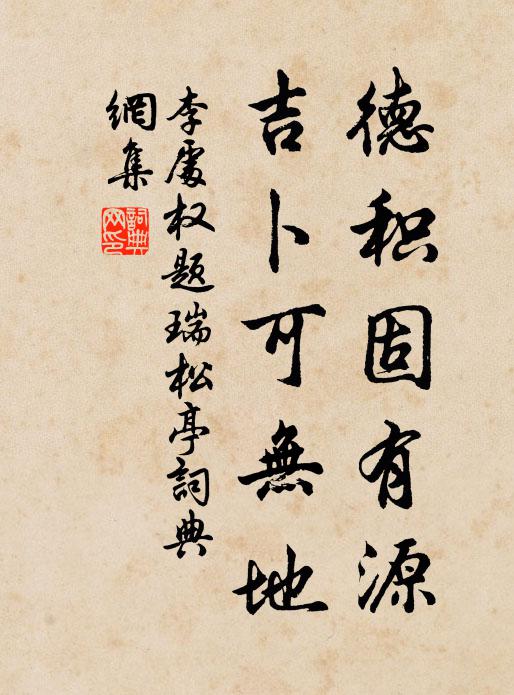 德积固有源
吉卜可無地
李處权题瑞松亭詞典
網集
詞典
网印